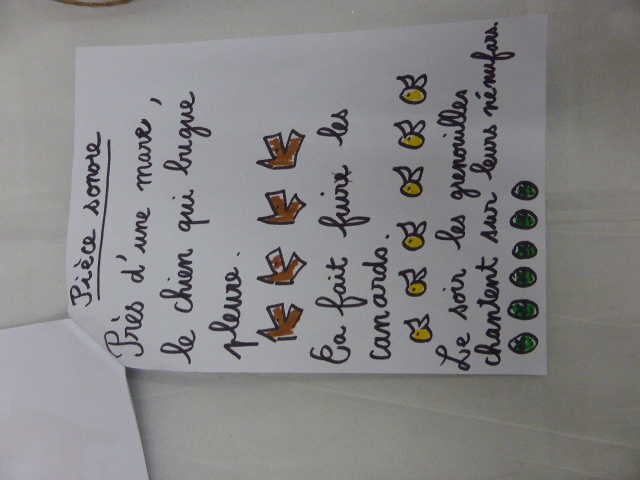 Pièce sonore
Près d'une mare,
le chien qui bugue
pleure.
Ça fait fuire les
canards.
Le soir les grenouilles
chantent sur leurs nénufars.